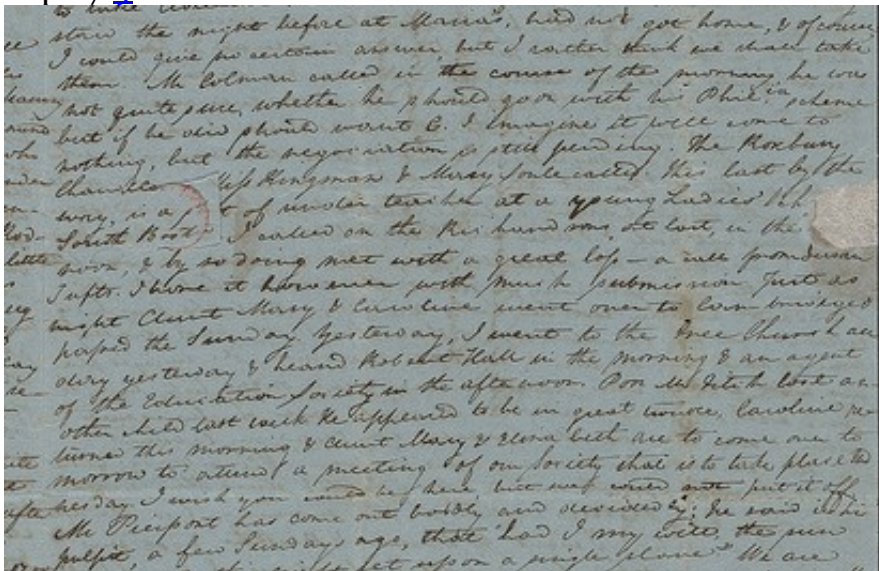 stairs the night before at Maria's, had not got home, & of course
I could give no certain answer, but I rather think we shall take
them. Mr Colman called in the course of the morning, he was
not quite sure, whether he should go on with his Phil.ia scheme
but if he did should want C. I imagine it will come to
nothing, but the negociation is still pending. The Roxbury
Chandler Miss Kingman & Mary Soule called. This last by the
way, is a sort of under teacher at a young Ladies' Sch
South Bost I called on the Richardsons, at last, in the
noon, & by so doing met with a great loss — a call from Susan
Tufts. I bore it however with much submission. Just as
night Aunt Mary & Caroline went over to Cambridge &
passed the Sunday. Yesterday, I went to the Free Church all
day yesterday & heard Robert Hall in the morning & an agent
of the Education Society in the afternoon. Poor Mr Fitch lost an-
other child last week He appeared to be in great
Caroline re-
turned this morning & Aunt Mary & Elizabeth are to come over to
morrow to attend a meeting of our Society that is to take place
nesday. I wish you could be here, but we could not put it off.
Mr Pierpont has come out boldly and decidedly; he said in his
pulpit, a few Sundays ago, that "had I my will, the sun
set upon a single slave" We are